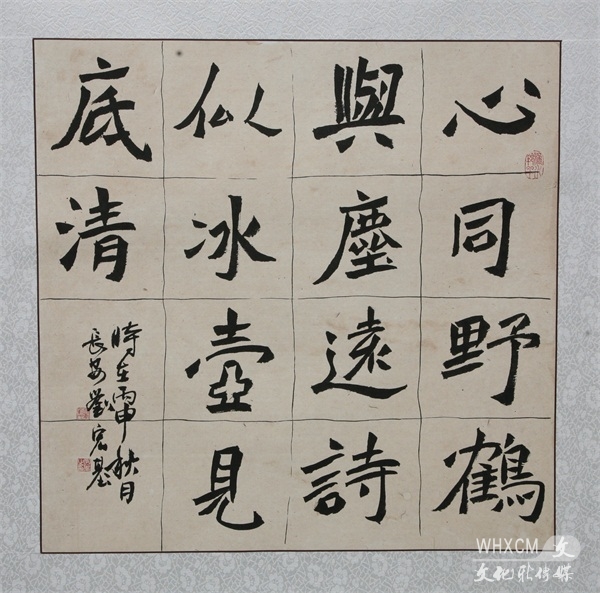 心同野鶴
與塵遠詩
似冰壺見
底清
時在丙申秋月
長安劉宏基
WHXCM 文
文化新传媒